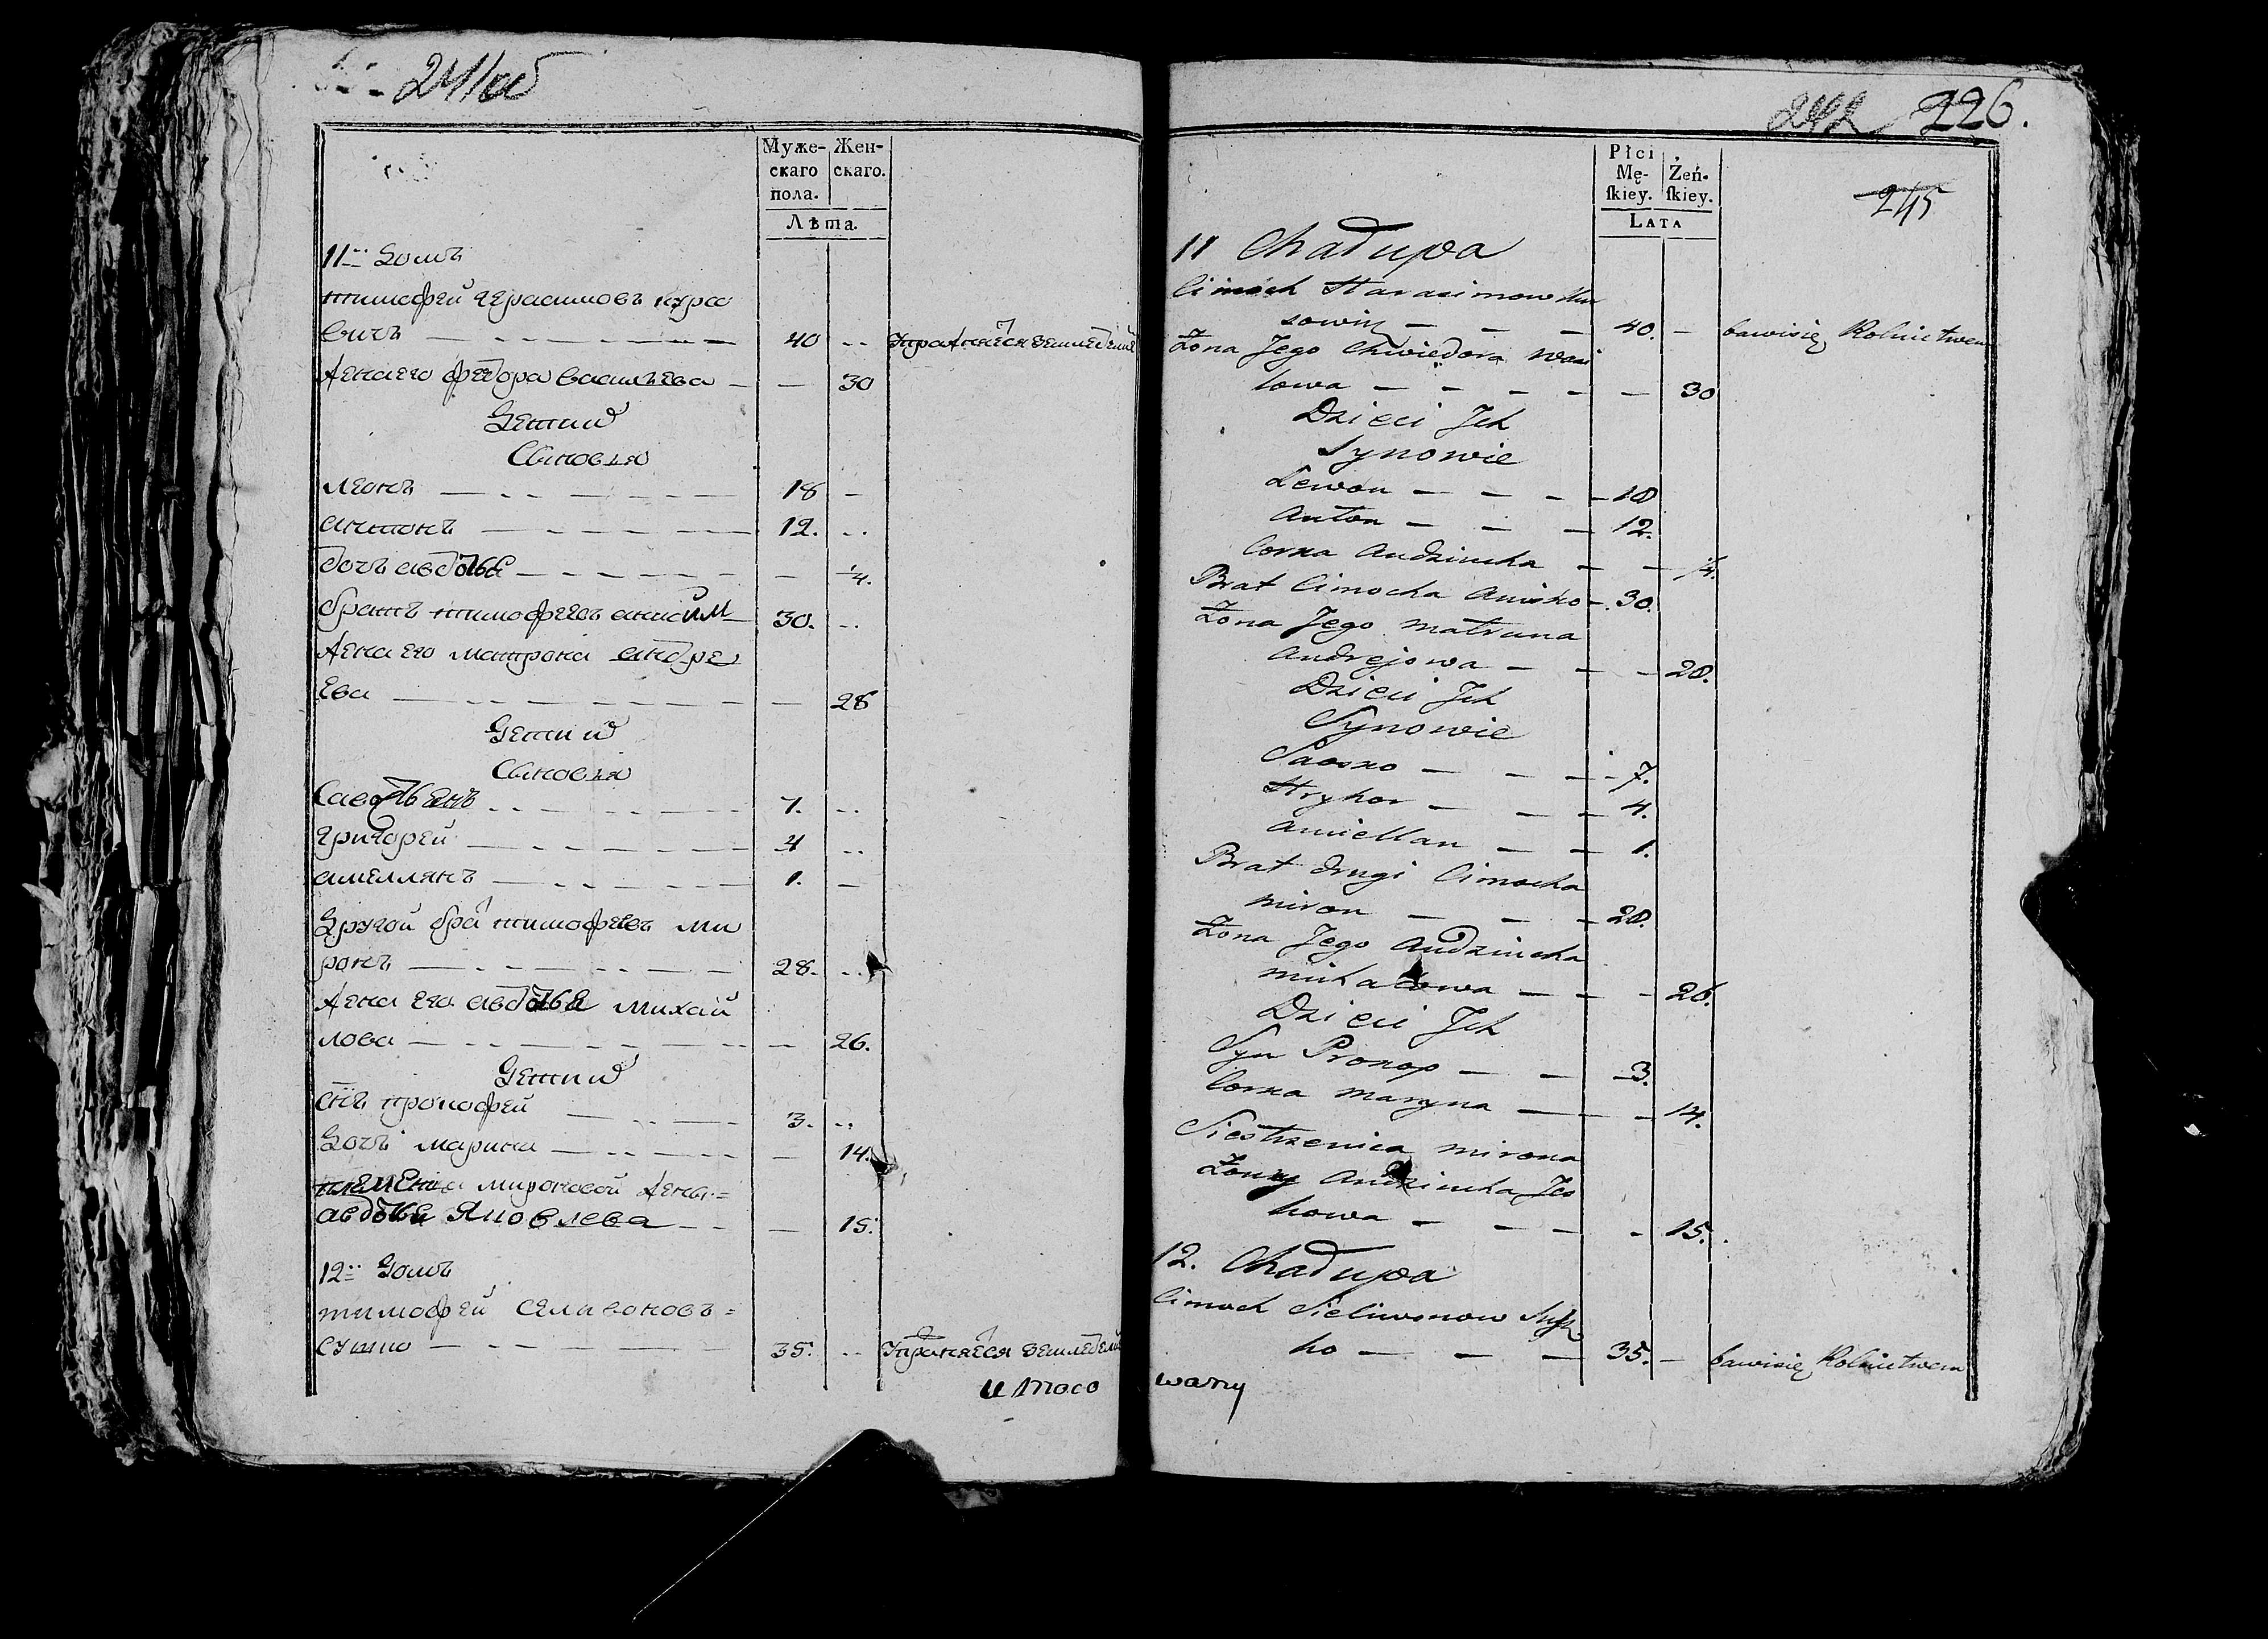 241/об
Муже-
скаго
пола.
Жен-
скаго.
Лѣта.
11й Домъ
тимофей герасимовъ кура
вичъ 40 упражняется земледел
жена его федора василъева 30
Дети их
Сыновъя
леонъ 18
антонъ 12.
дочъ авдотья 4.
братъ тимофеевъ анисим 30.
жена его матрона андре
ева 28
Дети их
Сыновъя
7.
григорей 4
амеллянъ 1.
Другой бра тимофеевъ ми
ронъ 28.
жена его авдотья михай
лова 26.
Дети их
снъ прокофей 3.
Дочъ марина 14.
племеница мироновой жены
авдотья яковлева 15.
12й Домъ
тимофей селивоновъ
сушко 35. упражняется земледел
и тасо
242 226.
245
Płci
Mę-
ſkiey.
Żeń-
ſkiey.
LATA
11 Chałupa
Cimoch Harasimow Ku
rowicz 40. bawi się Rolnictwem
Żona Jego Chwiedora Wasi
lowa 30
Dzieci Jch
Synowie
Lewon 18
Anton 12.
Corka Audziucha 4.
Brat Cimocha Anisko 30.
Żona Jego Matruna
Andrejowa 28.
Dzieci Jch
Synowie
Sawsko 7.
Hryhor 4.
Amiellan 1.
Brat drugi Cimocha
Miron 28.
Żona Jego Audziucha
Michałowa 26.
Dzieci Jch
Syn Prokop 3.
Corka Maryna 14.
Siestrzenica Mirona
Żony Audziucha Jes
howa 15.
12. Chałupa
Cimoch Sieliwonow Susz
ko 35. bawi się Rolnictwem
warzy